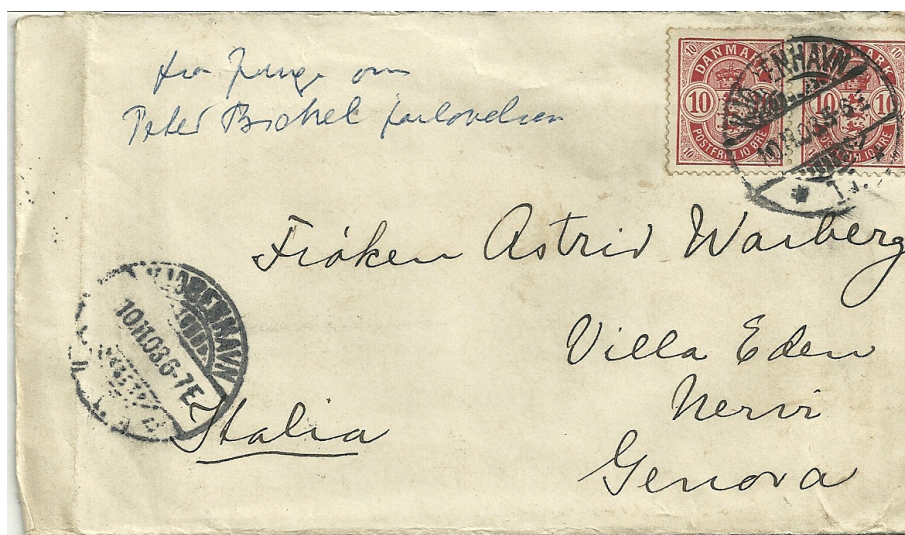 fra Junge om
Peter Bichel forlovelsen
DANMARK
10 10
POSTFRIM 10 ØRE
KJØBENHAVN
10.11.03
Frøken Astrid Warberg
Villa Eden
Nervi
Genova
Italia
KJØBENHAVN
10.11.03.6-7E